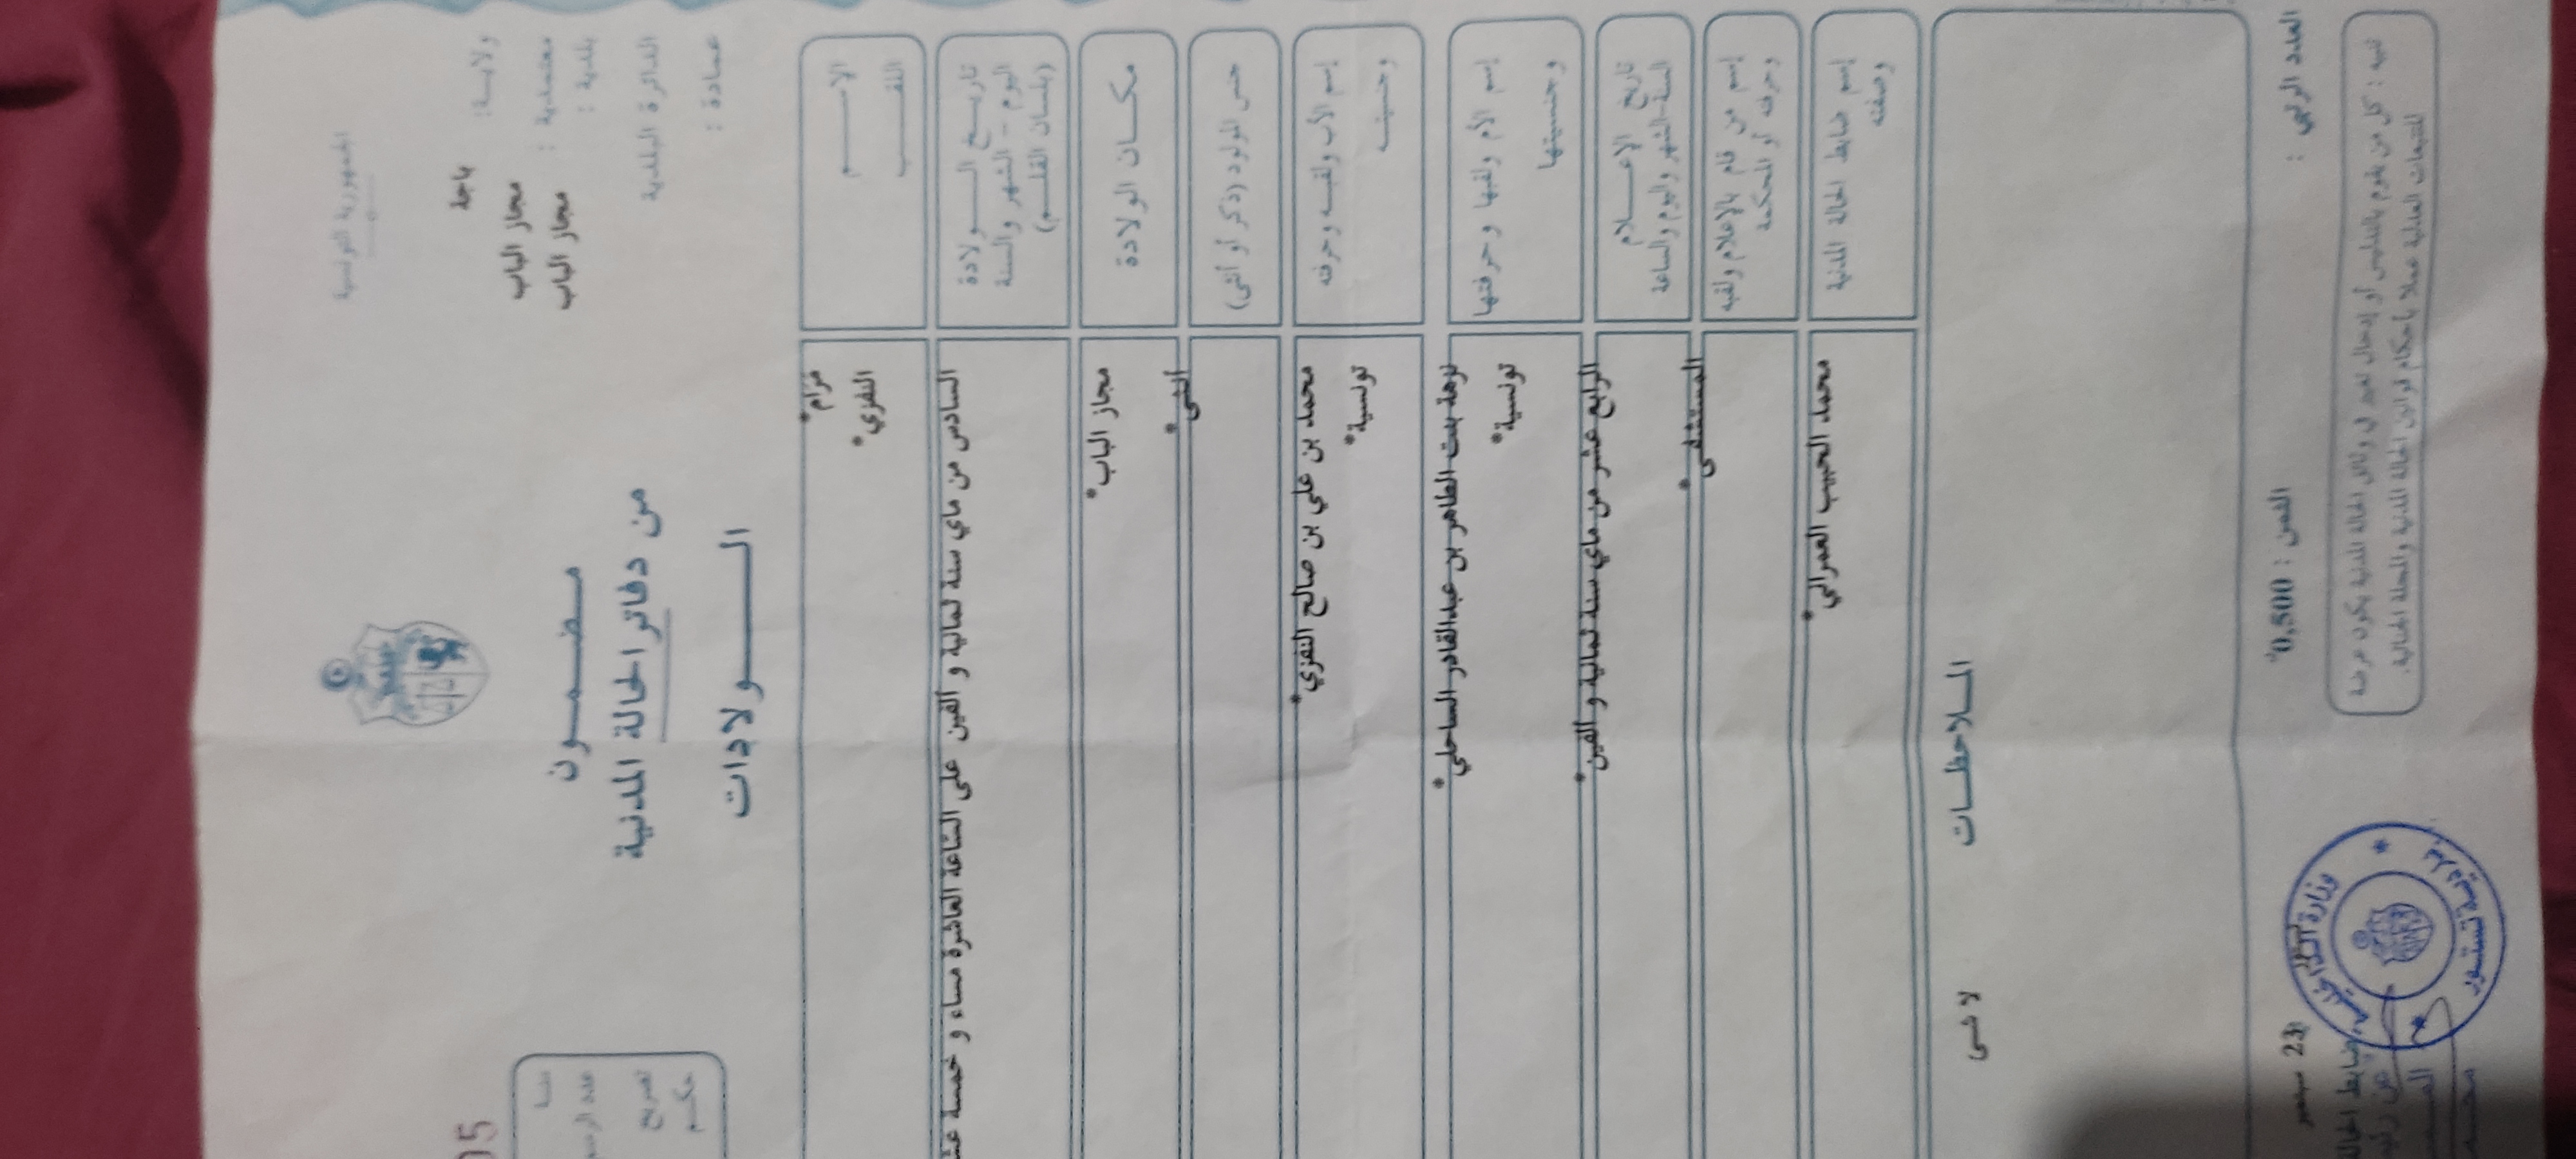 الجمهورية التونسية
ولايـة : باجة
معتمدية : مجاز الباب
بلدية : مجاز الباب
الدائرة البلدية
عمـادة :
مـضـمـون
من دفاتر الحالة المدنية
الـولادات
05
عدد الرسم
تصريح
حكم
الاسـم
اللقـب
مرام*
النفزي*
تاريـخ الـولادة
اليوم - الشهر والسنة
(بلسان القلـم)
السادس من ماي سنة ثمانية و ألفين على الساعة العاشرة مساء و خمسة
مكـان الولادة
مجاز الباب*
جنس المولود (ذكر أو أنثى)
أنثى*
إسم الأب ولقبـه وحرفته
وجنسيته
محمد بن علي بن صالح النفزي*
تونسية*
إسم الأم ولقبها وحرفتها
وجنسيتها
بنت الطاهر بن عبدالقادر الساحلي*
تونسية*
تاريخ الإعـلام
السنة-الشهر واليوم والساعة
الرابع عشر من ماي سنة ثمانية و ألفين*
إسم من قام بالإعلام ولقبه
وحرفته أو المحكمة
المستشفى*
إسم ضابط الحالة المدنية
وصفته
محمد الحبيب العمراني*
المـلاحظـات
لا شى
العدد الرتبي :
الثمن : 0,500
23
تنبيه : كل من يقوم بالتدليس أو إدخال تغيير في وثائق الحالة المدنية يكون عرضة
للتتبعات العدلية عملا بأحكام قوانين الحالة المدنية والمجلة الجنائية.
وزارة الداخلية
بلدية تستور
ضابط الحالة